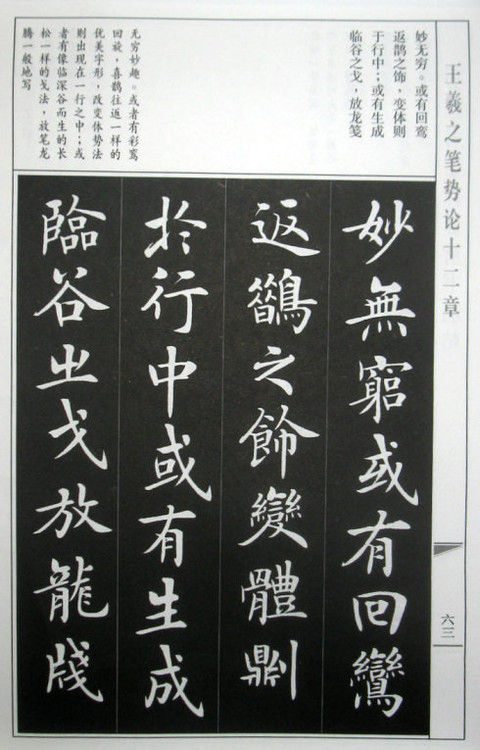 王羲之笔势论十二章
六三
妙无穷。或有回鸾
返鹊之饰，变体则
于行中；或有生成
临谷之戈，放龙笺
无穷妙趣。或者有彩鸾
回旋，喜鹊往返一样的
优美字形，改变体势法
则出现在一行之中；或
者有像临深谷而生的长
松一样的戈法，放笔龙
腾一般地写
妙無窮或有回鸞
返鵲之飾變體則
於行中或有生成
臨谷之戈放龍牋